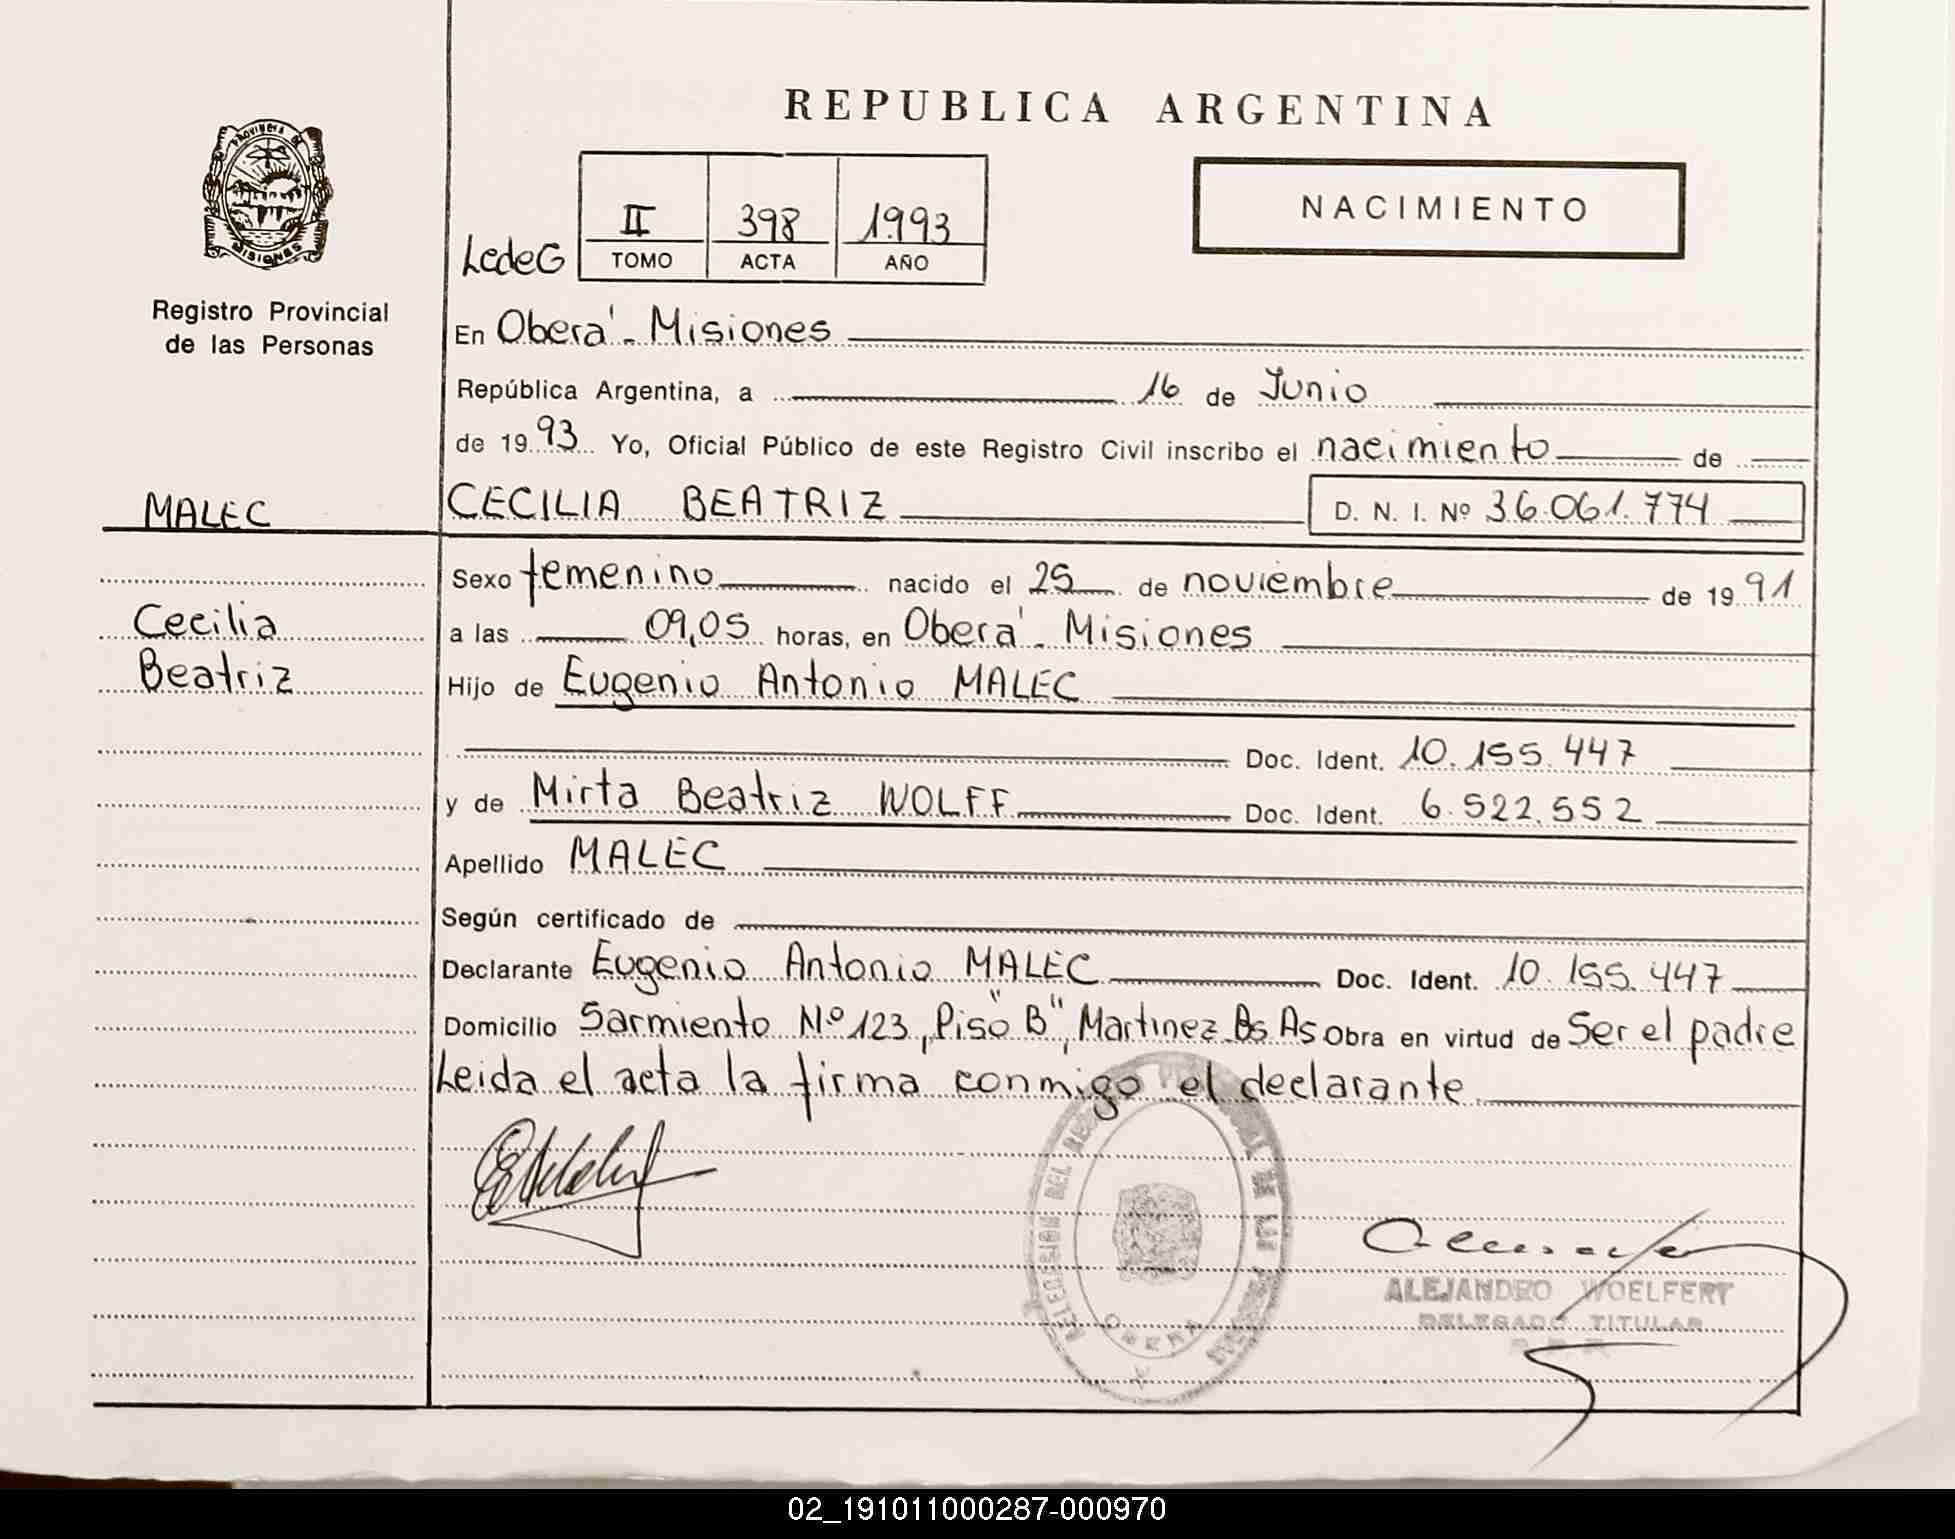 REPUBLICA ARGENTINA
PROVINCIA DE
MISIONES
Registro Provincial
de las Personas
LedeG
II 398 1993
TOMO ACTA AÑO
NACIMIENTO
En Oberá - Misiones
República Argentina, a 16 de Junio
de 1993 Yo, Oficial Público de este Registro Civil inscribo el nacimiento de
MALEC
CECILIA BEATRIZ D. N. I. Nº 36.061.774
Sexo femenino nacido el 25 de noviembre de 1991
Cecilia
a las 09,05 horas, en Oberá - Misiones
Beatriz
Hijo de Eugenio Antonio MALEC
Doc. Ident. 10.155.447
y de Mirta Beatriz WOLFF Doc. Ident. 6.522.552
Apellido MALEC
Según certificado de
Declarante Eugenio Antonio MALEC Doc. Ident. 10.155.447
Domicilio Sarmiento Nº 123, Piso "B", Martinez Bs As Obra en virtud de Ser el padre
Leida el acta la firma conmigo el declarante
DELEGACION DEL
OBERA
ALEJANDRO WOELFERT
DELEGADO TITULAR
02_191011000287-000970